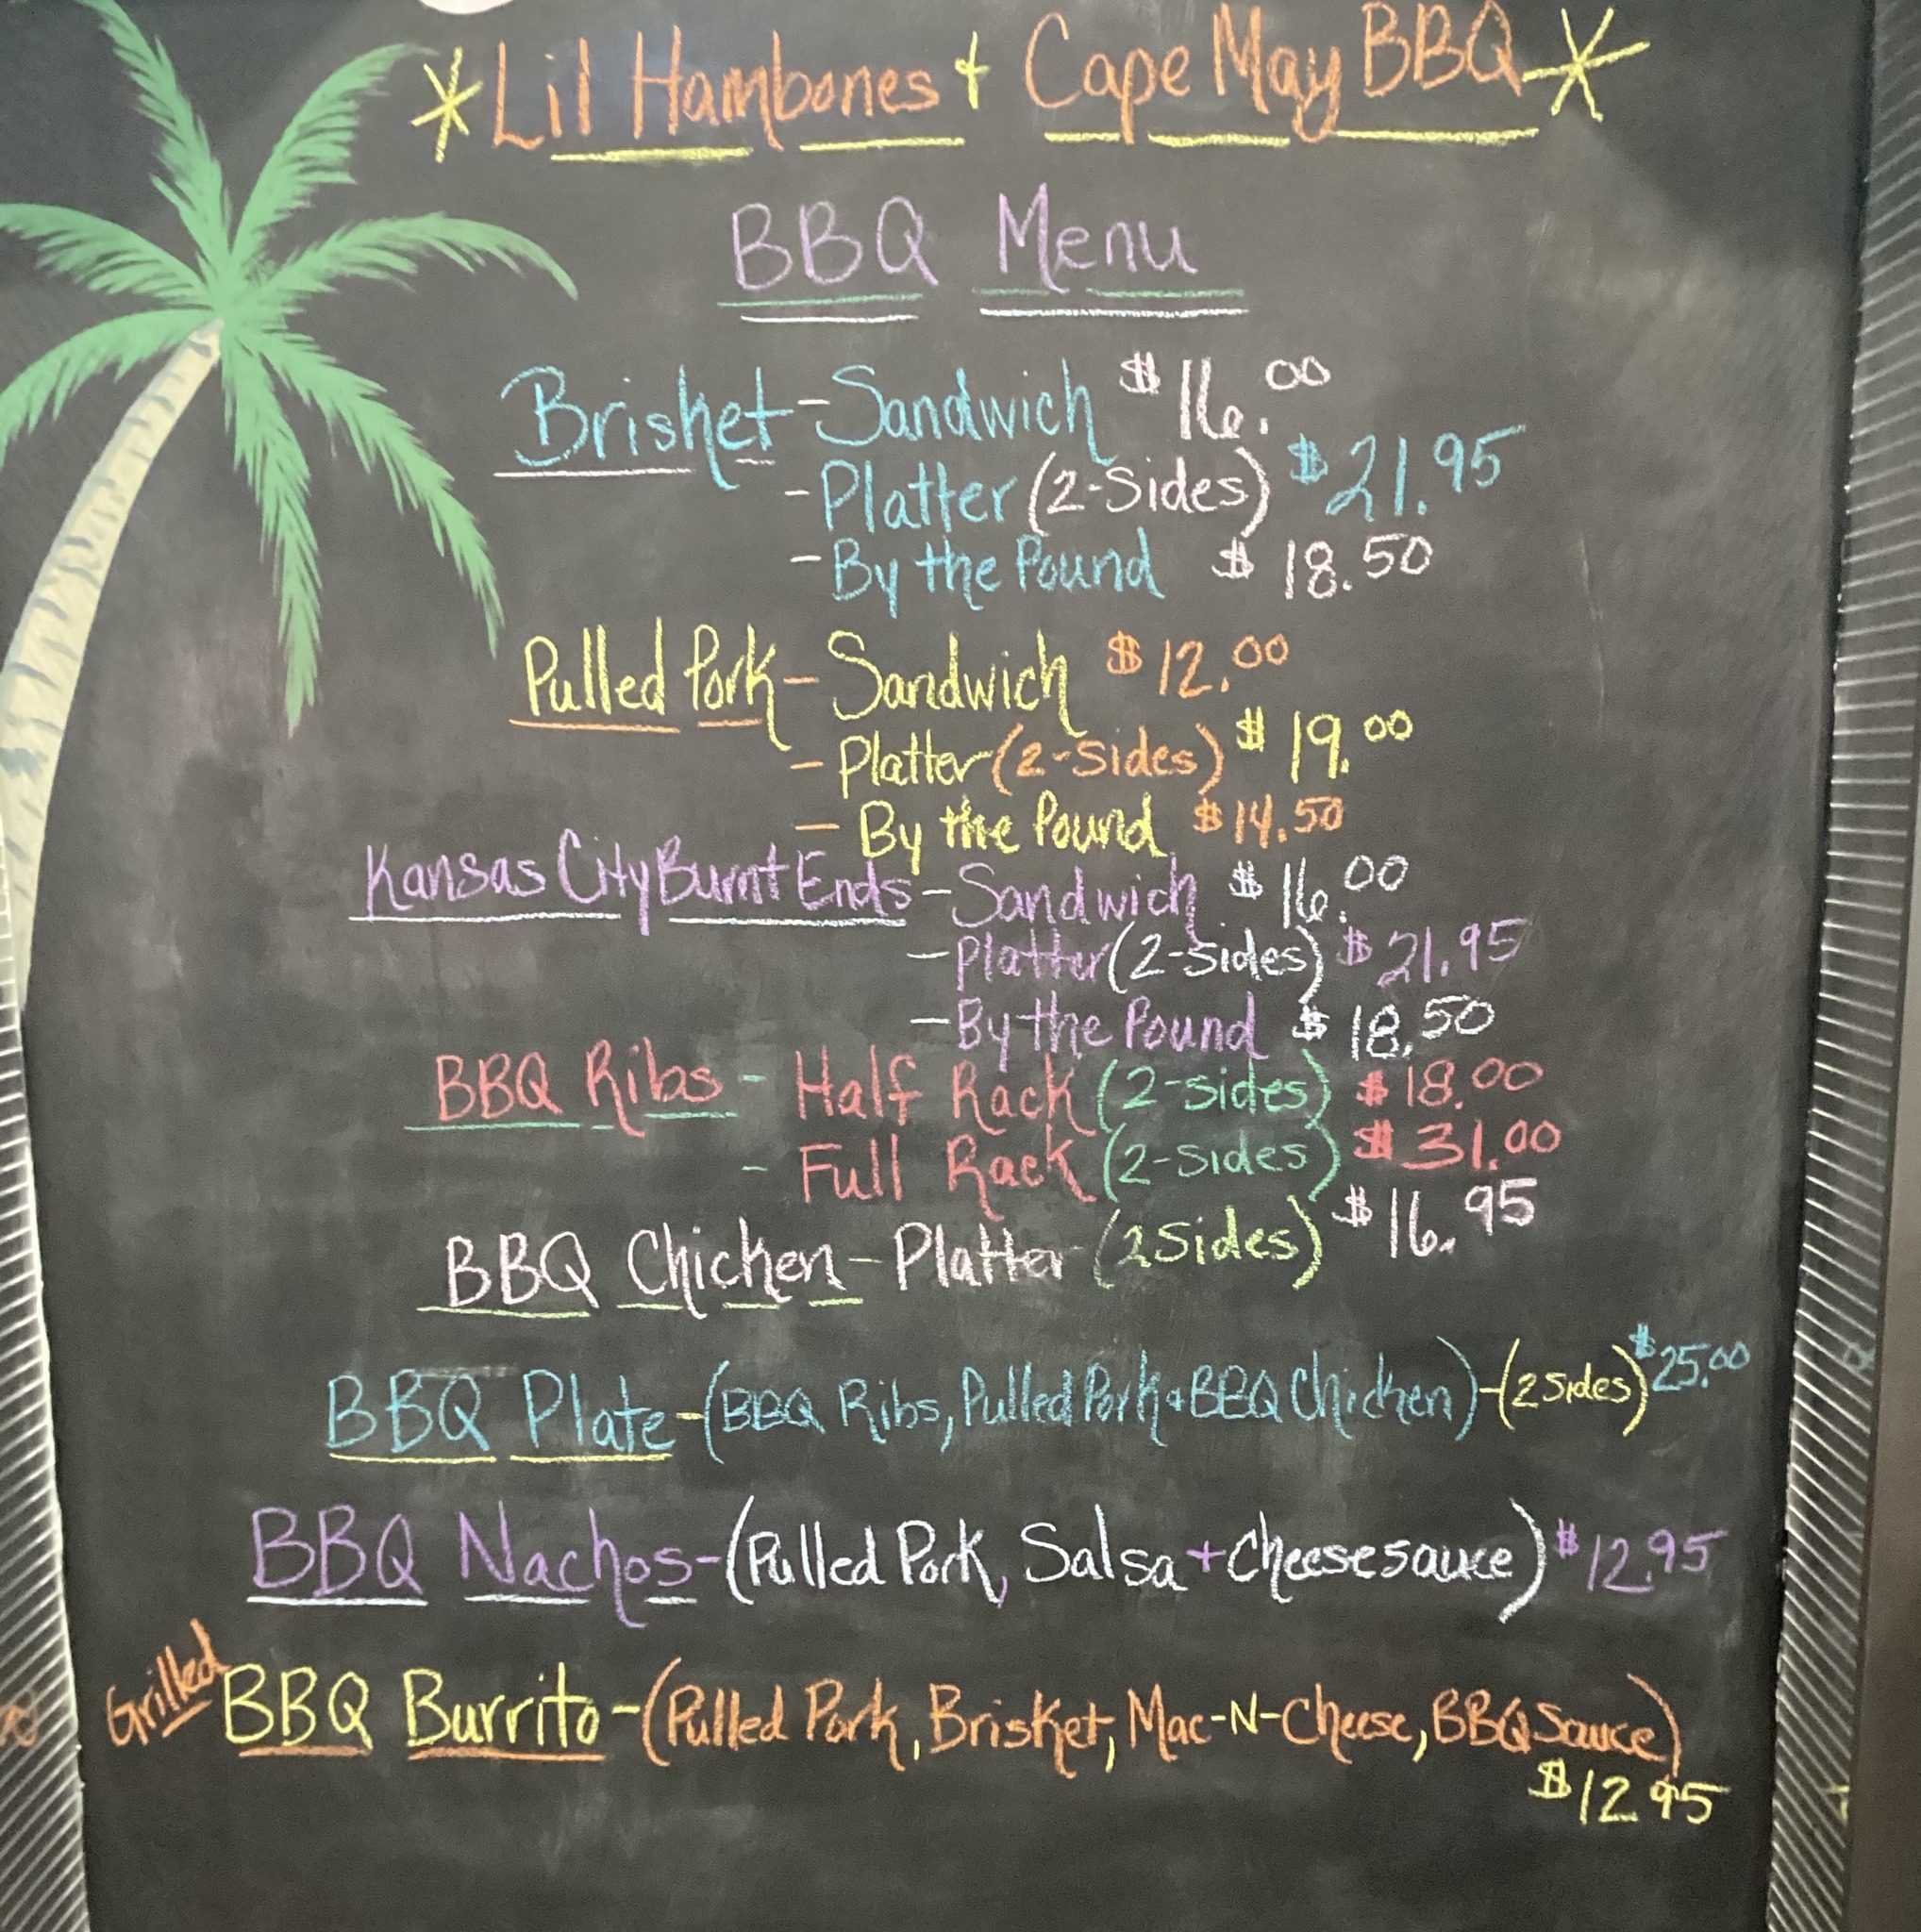 *Lil Hambones + Cape May BBQ*
BBQ Menu
Brisket - Sandwich $16.00
- Platter (2-Sides) $21.95
- By the Pound $18.50
Pulled Pork - Sandwich $12.00
- Platter (2-Sides) $19.00
- By the Pound $14.50
Kansas City Burnt Ends - Sandwich $16.00
- Platter (2-Sides) $21.95
- By the Pound $18.50
BBQ Ribs - Half Rack (2-sides) $18.00
- Full Rack (2-sides) $31.00
BBQ Chicken - Platter (2 Sides) $16.95
BBQ Plate - (BBQ Ribs, Pulled Pork + BBQ Chicken) - (2 Sides) $25.00
BBQ Nachos - (Pulled Pork, Salsa + Cheese sauce) $12.95
Grilled BBQ Burrito - (Pulled Pork, Brisket, Mac-N-Cheese, BBQ Sauce)
$12.95